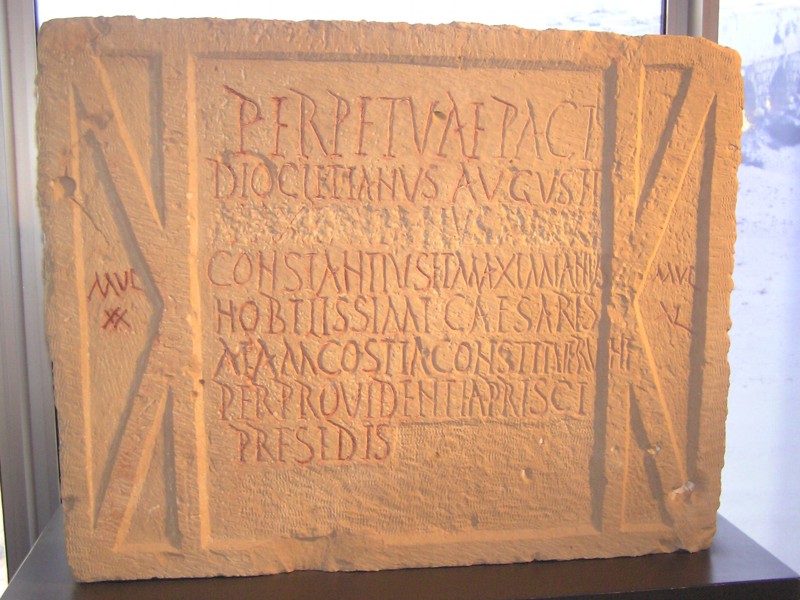 PERPETVAE PACI
DIOCLETIANVS AVGVSTI
CONSTANTIVS ET MAXIMIANVS
NOBILISSIMI CAESARES
ALAM COSTIA CONSTITVERVNT
PER PROVIDENTIA PRISCI
PRESIDIS
MVL
XX
MVL
XL